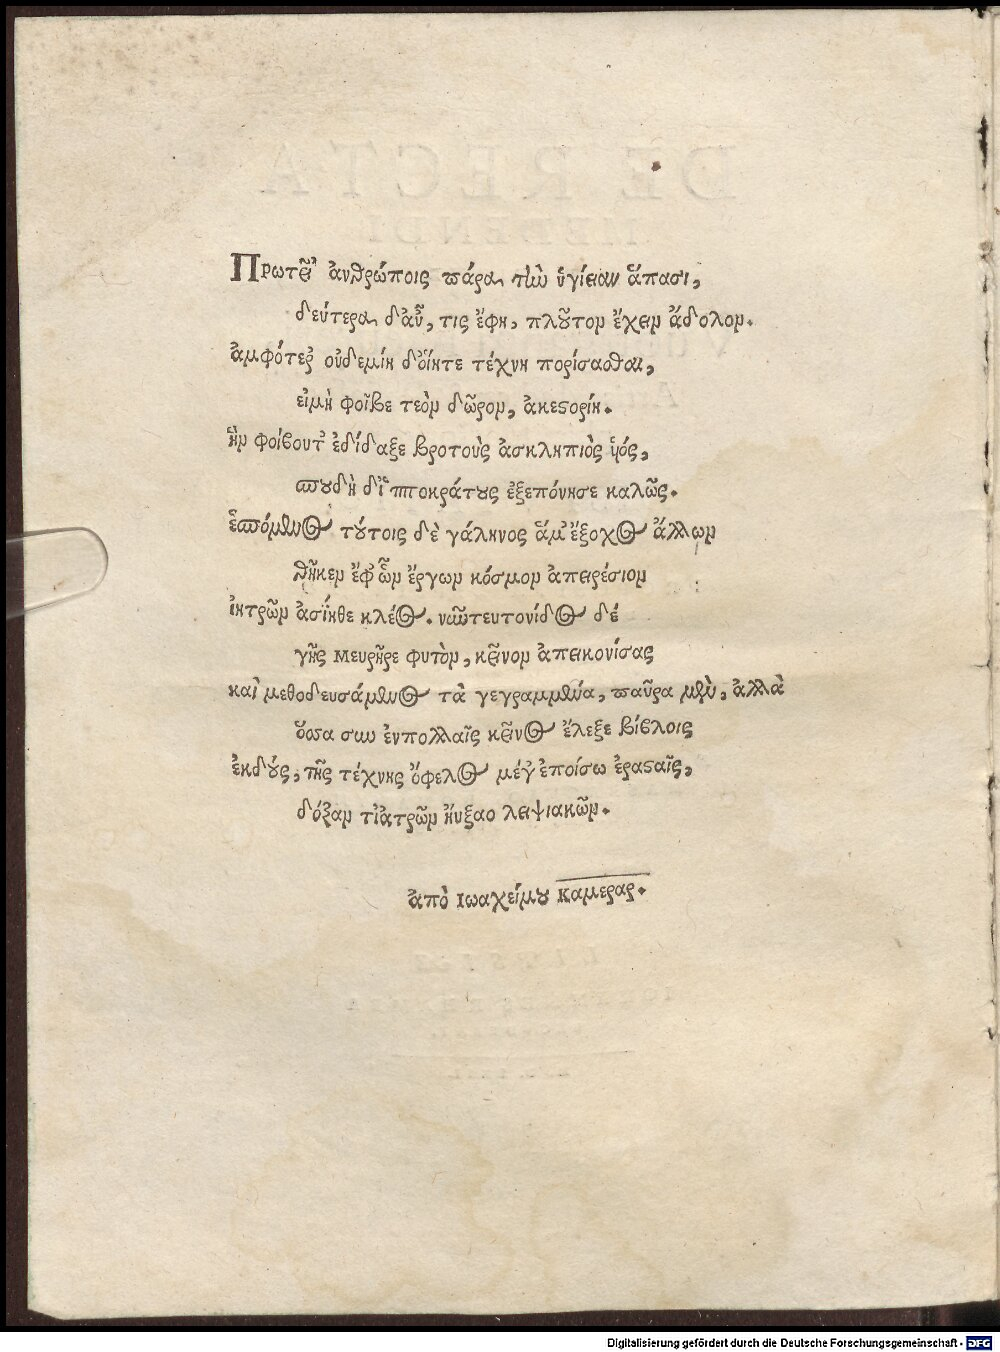 Πρωτεῖ' ἀνθρώποις πάρα τὴν ὑγίειαν ἅπασι,
δεύτερα δ'αὖ, τις ἔφη, πλοῦτον ἔχειν ἄδολον.
ἀμφότερ' οὐδεμίη δοίητε τέχνη πορίσασθαι,
εἰμὴ φοῖβε τεὸν δῶρον, ἀκεστορίη.
ἣν φοίβουτ' ἐδίδαξε βροτοὺς ἀσκληπιὸς ὑιός,
σπουδὴ δ'ἱπποκράτους ἐξεπόνησε καλῶς.
ἑσπόμενος τούτοις δὲ γάληνος ἅμ' ἔξοχος ἄλλων
θῆκεν ἔφ' ὧν ἔργων κόσμον ἀπειρέσιον
ἰητρῶν ἀσίηθε κλέος. νῦν τευτονίδος δέ
γῆς Μευρῆρε φυτὸν, κεῖνον ἀπεικονίσας
καὶ μεθοδευσάμενος τὰ γεγραμμένα, παῦρα μὲν, ἀλλὰ
ὅσσα συν ἐνπολλαῖς κεῖνος ἔλεξε βίβλοις
ἐκδούς, τῆς τέχνης ὄφελος μέγ' ἐποίσω ἐρασταῖς,
δόξαν τ'ἰατρῶν ηὔξαο λειψιακῶν.
ἀπὸ Ιωαχείμου Καμεραρ.
DE RECTA
MEDENDI
Digitalisierung gefördert durch die Deutsche Forschungsgemeinschaft - DFG